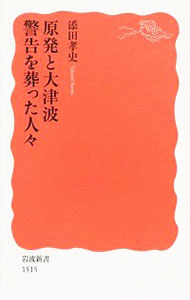 添田孝史
Takashi Soeda
原発と大津波
警告を葬った人々
岩波新書
1515